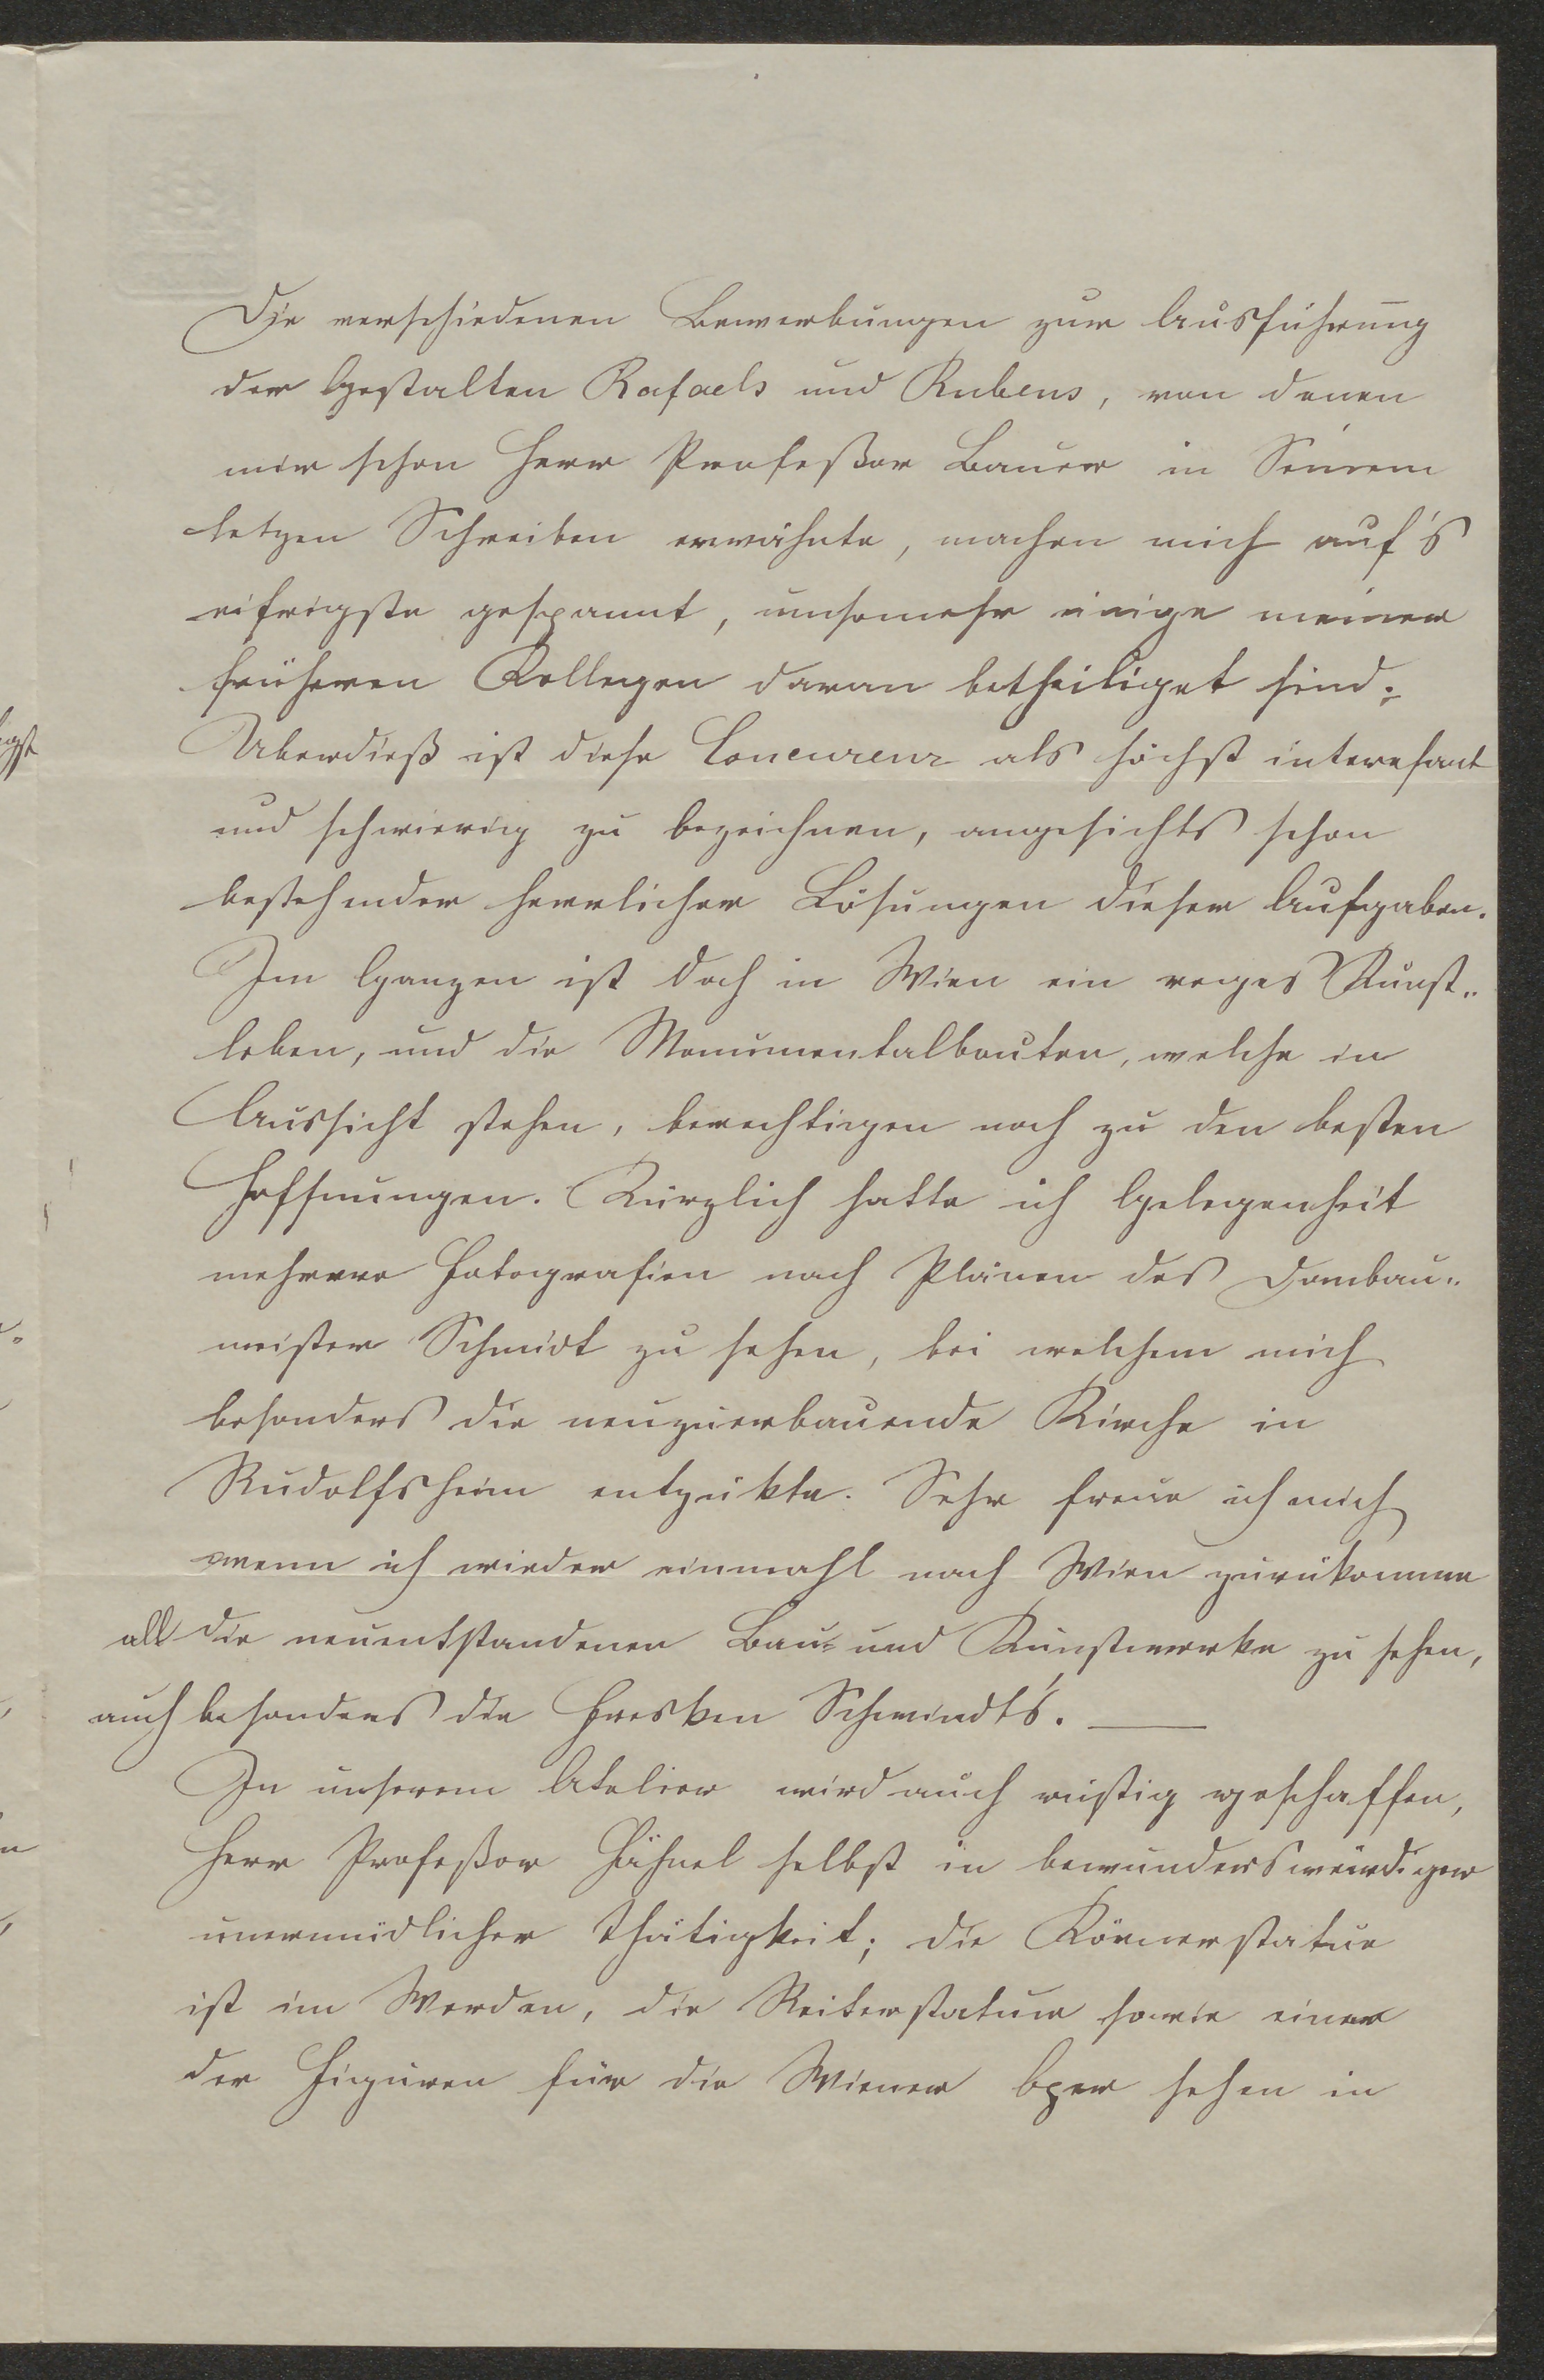 Die verschiedenen Bewerbungen zur Ausführung
der Gestalten Rafaels und Rubens, von denen
mir schon Herr Profeßor Bauer in Seinem
letzen Schreiben erwähnte, machen mich auf's
eifrigste gespannt, umsomehr einige meiner
früheren Kollegen daran betheiliget sind.
Uberdieß ist diese Concurenz als höchst interesant
und schwierig zu bezeichnen, angesichts schon
bestehender herrlicher Lösungen dieser Aufgaben.
Im Ganzen ist doch in Wien ein reges Kunst„
leben, und die Monumentalbauten, welche in
Aussicht stehen, berechtigen noch zu den besten
Hoffnungen. Kürzlich hatte ich Gelegenheit
mehrere Fotografien nach Plänen des Dombau„
meister Schmidt zu sehen, bei welchem mich
besonders die neuzuerbauende Kirche in
Rudolfsheim entzükte. Sehr freue ich mich
wenn ich wieder einmahl nach Wien zurükomme
all die neuentstandenen Bau- und Kunstwerke zu sehen,
auch besonders die Fresken Schwindt's. —
In unserem Atelier wird auch rüstig geschaffen,
Herr Profeßor Hähnel selbst in bewunderswürdiger
unermüdlicher Thätigkeit; die Körnerstatue
ist im Werden, die Reiterstatue sowie einer
der Figuren für die Wiener Oper sehen in